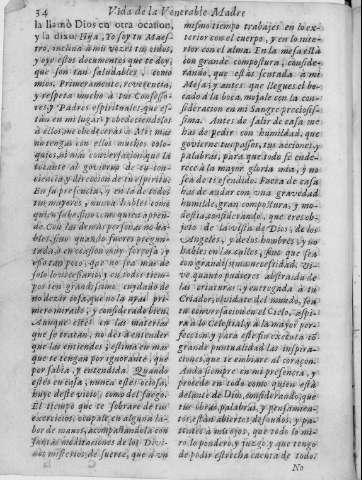 34 Vida de la Venerable Madre
la llamò Dios en otra ocasion,
y la dixo: Hija, Yo soy tu Maes-
tro, inclina à mi voz tus oidos,
y oye estos documentos que te doy,
que son tan saludables, como
mios. Primeramente, reverencia,
y respeta mucho à tus Confesso-
res, y Padres espirituales, que es-
tàn en mi lugar, y obedeciendolos
à ellos, me obedeceràs à Mi; mas
no tengas con ellos muchos colo-
quios, ni mas conversacion, que la
tocante al govierno de tu con-
ciencia, y direccion de tu espiritu.
En su presencia, y en la de todos
tus mayores, nunca hables como
quien sabe, sino como quien apren-
de. Con las demàs personas no ha-
bles, sino quando fueres pregun-
tada, ò ocasion muy forçosa, y
esto tan poco, que no sea mas de
solo lo necessario; y en todos tiem-
pos ten grandissimo cuydado de
no dezir cosa, que no la ayas pri-
mero mirado, y considerado bien.
Aunque estès en las materias
que se tratan, no dès à entender
que las entiendes; estima en mas
que te tengan por ignorante, que
por sabia, y entendida. Quando
estès en casa, nunca estès ociosa,
huye deste vicio, como del fuego.
El tiempo que te sobrare de tus
exercicios, ocupale en alguna la-
bor de manos, acompañandola con
santas meditaciones de los Divi-
nos misterios, de suerte, que à un
mesmo tiempo trabajes en lo ex-
terior con el cuerpo, y en lo inte-
rior con el alma. En la mesa està
con grande compostura, conside-
rando, que estàs sentada à mi
Mesa; y antes que llegues el bo-
cado à la boca, mojale con la con-
sideracion en mi Sangre preciosis-
sima. Antes de salir de casa me
has de pedir con humildad, que
govierne tus passos, tus acciones, y
palabras, para que todo se ende-
rece à la mayor gloria mia, y no
sea de ti ofendido. Fuera de casa
has de andar con una gravedad
humilde, gran compostura, y mo-
destia, considerando, que eres ob-
jeto de la vista de Dios, de los
Angeles, y de los hombres; y no
hables en las calles, sino que sea
con grandissima necessidad. Vi-
ve quanto pudieres abstraida de
las criaturas, y entregada à tu
Criador, olvidate del mundo, sea
tu conversacion en el Cielo, aspi-
ra à lo Celestial, y à la mayor per-
feccion, y para este fin executa con
grande puntualidad las inspira-
ciones, que te embiare al coraçon.
Anda siempre en mi presencia, y
procede en todo como quien està
delante de Dios, considerando, que
tus obras, palabras, y pensamien-
tos, estàn abiertos à mis ojos, que todo lo mi-
ro, lo pondero, y juzgo, y que tengo
de pedir estrecha cuenta de todo.
No